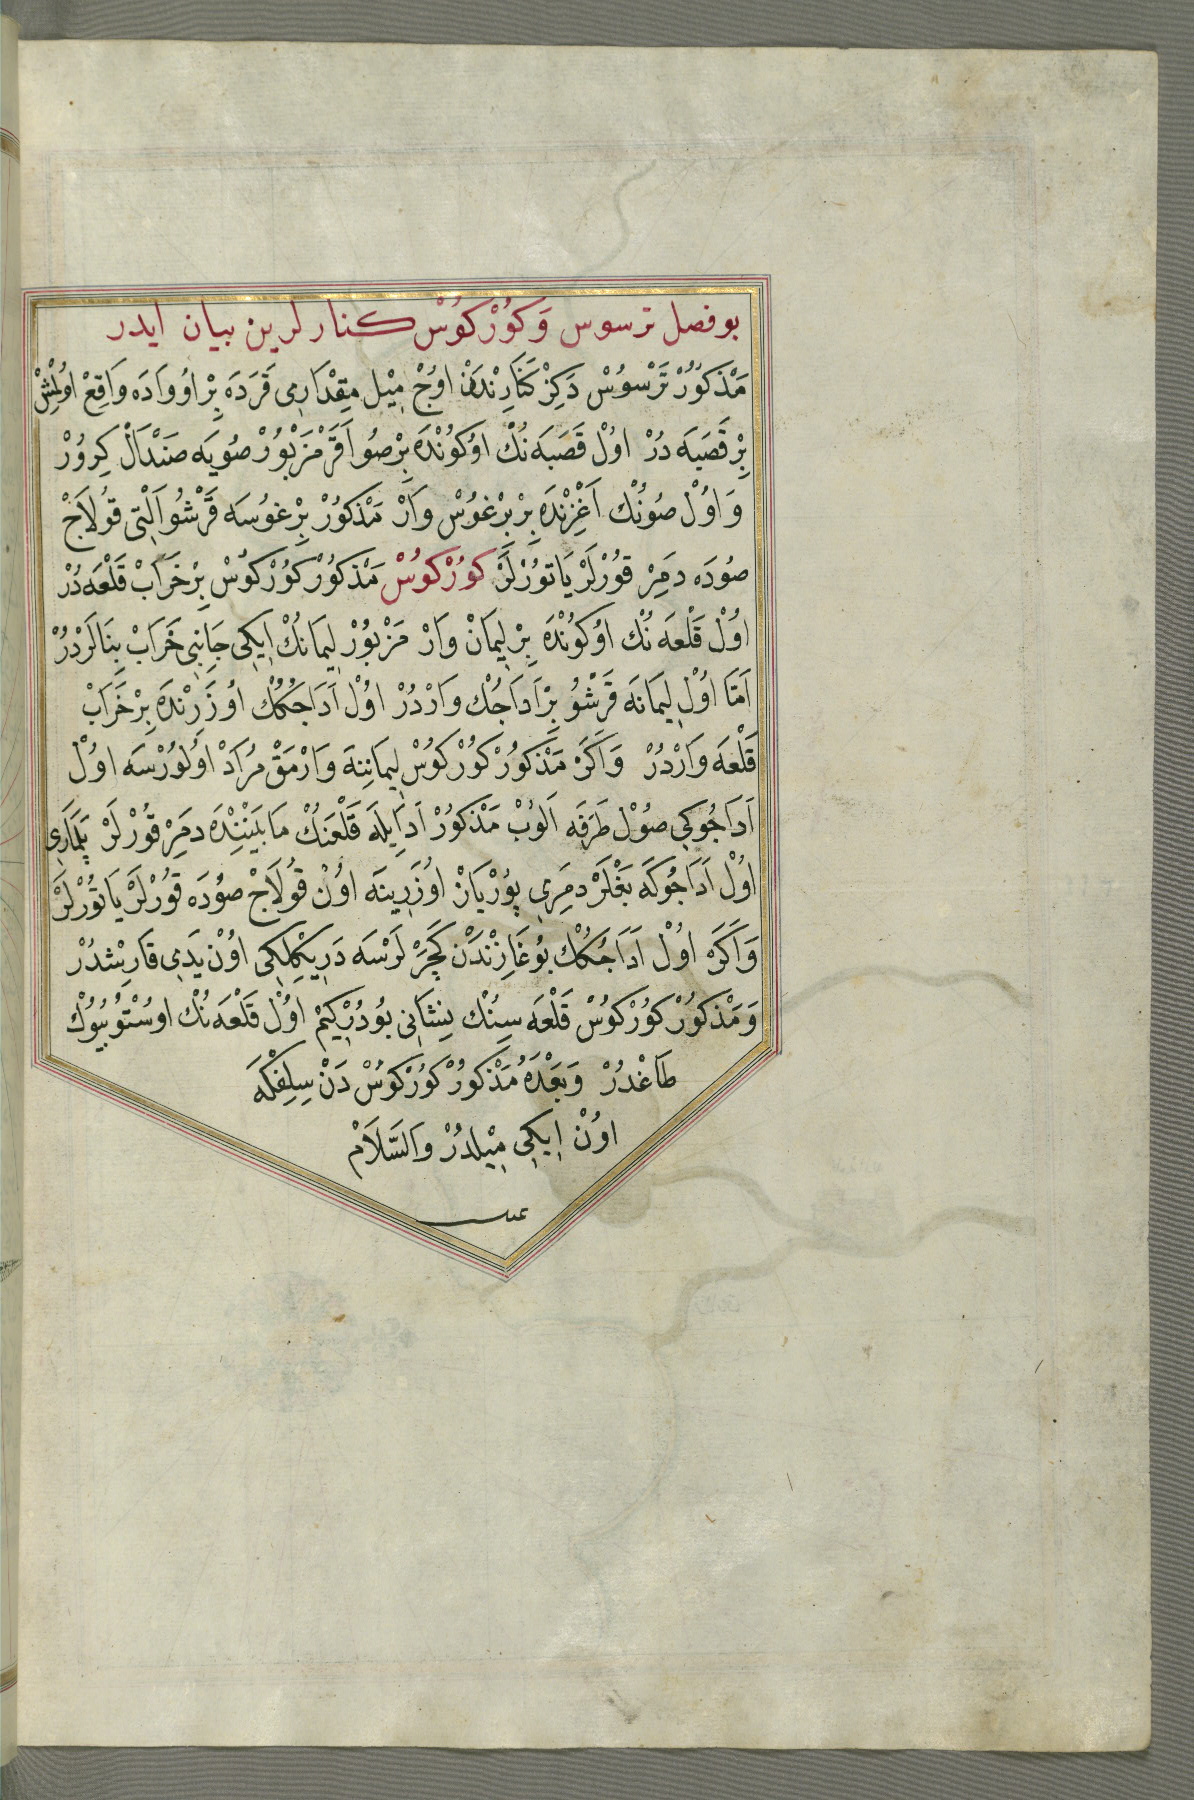 بو فصل ترسوس وَكوُرْكوُسْ كنارلرين بيان ايدر
مَذْكُوُرْ تَرْسوُسْ دَكِزْ كَنَارِنْدَنْ اوُجْ مِيْل مِقْدَارِى قَرَدَه بِرْ اوُوادَه وَاقِعْ اوُلْمِشْ
بِرْ قَصَبَه دُرْ اوُلْ قَصَبَه نُكْ اوُكوُنْدَه بِرْ صُو اَقَرْ مَزْبُورْ صُويَه صَنْدَالْ كِروُرْ
وَ اوُلْ صُونُكْ اَغْزِنْدَه بِرْ بِرْغوُسْ وَارْ مَذْكوُرْ بِرْغوُسَه قَرْشُو اَلْتِى قوُلَاجْ
صوُدَه دمِرْ قوُرْلَرْ يَاتوُرْلَرْ كوُرْكوُسْ مَذْكوُرْ كوُرْكوُسْ بِرْ خَرَابْ قَلْعَه دُرْ
اوُلْ قَلْعَه نُكْ اوُكوُنْدَه بِرْ لِيمَانْ وَارْ مَزْبوُرْ لِيمَانُكْ اِيكِى جَانِبِى خَرَابْ بِنَالَرْدُرْ
اَمَّا اوُلْ لِيمَانَه قَرْشُو بِرْ اَدَاجُكْ وَارْدُرْ اوُلْ اَدَاجُكُكْ اوُزَرِنْدَه بِرْ خَرَابْ
قَلْعَه وَارْدُرْ وَاَكَرْ مَذْكوُرْ كوُرْكوُسْ لِيمَانِنَه وَارْمَقْ مُرَادْ اوُلوُرْسَه اوُلْ
اَدَاجُوكِى صوُلْ طَرَفَه اَلوُبْ مَذْكوُرْ اَدَايِلَه قَلْعَنُكْ مَابَيْنِنْدَه دمِرْ قوُرْلَرْ پَلَمَارِى
اوُلْ اَدَاجُوكَه بَغْلَرْ دمِرِى پوُرْيَازْ اوُزَرِينَه اوُنْ قوُلَاجْ صوُدَه قوُرْلَرْ يَاتوُرْلَرْ
وَاَكَرْ اوُلْ اَدَاجُكُكْ بوُغَازِنْدَنْ كَچَرْلَرْسَه دَرِيكْلِكِى اوُنْ يَدِى قَارِشْدُرْ
وَمَذْكوُرْ كوُرْكوُسْ قَلْعَه سِنُكْ نِشَانِى بوُدُرْكِيمْ اوُلْ قَلْعَه نُكْ اوُسْتوُ بيُوكْ
طَاغْدُرْ وَبَعْدَهُ مَذْكوُرْ كوُرْكوُسْ دَنْ سِلِفْكَه
اوُنْ اِيكِى مِيْلدُرْ وَالسَّلَامْ